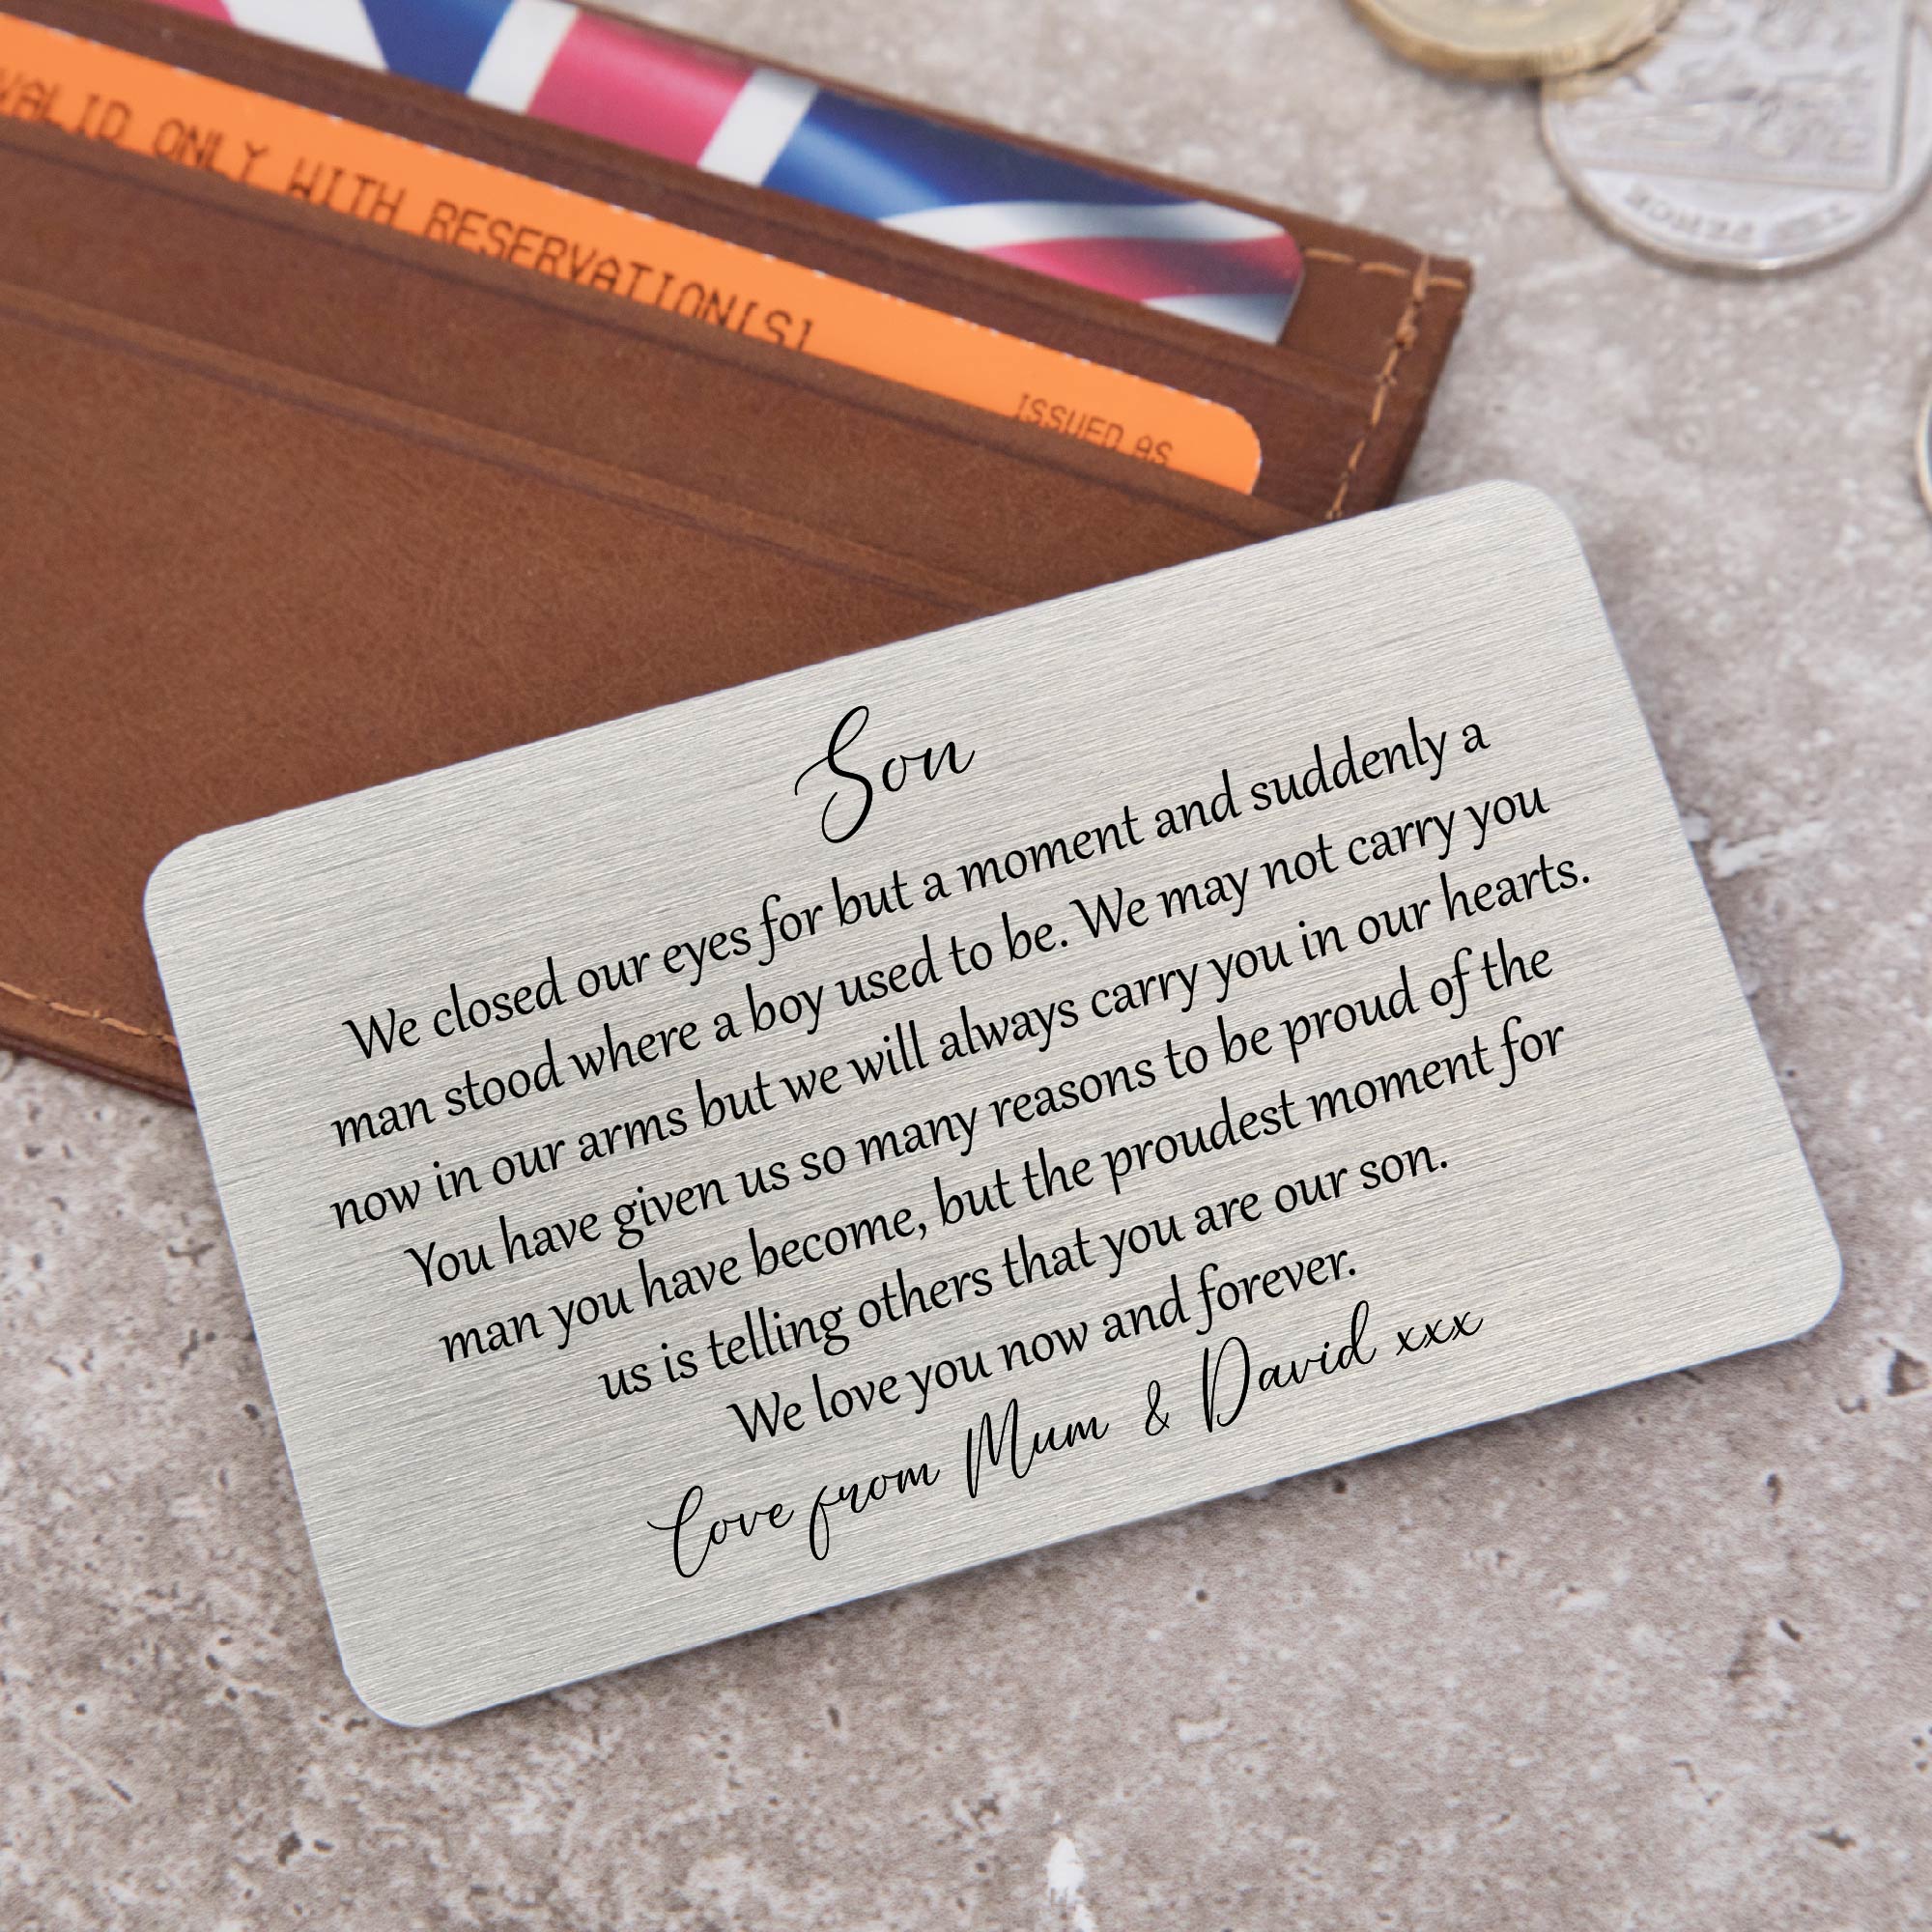 VALID ONLY WITH RESERVATION[S]
ISSUED AS
PENCE
Son
We closed our eyes for but a moment and suddenly a
man stood where a boy used to be. We may not carry you
now in our arms but we will always carry you in our hearts.
You have given us so many reasons to be proud of the
man you have become, but the proudest moment for
us is telling others that you are our son.
We love you now and forever.
Love from Mum & David xxx